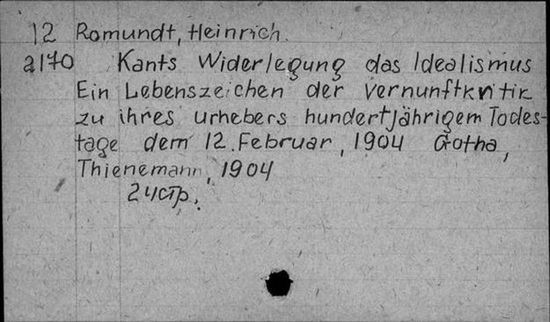 12 Romundt, Heinrich.
a170 Kants Widerlegung das Idealismus
Ein Lebenszeichen der Vernunftkritik
zu ihres urhebers hundertjährigem Todes-
tage dem 12. Februar, 1904 Gotha,
Thienemann, 1904
24стр.